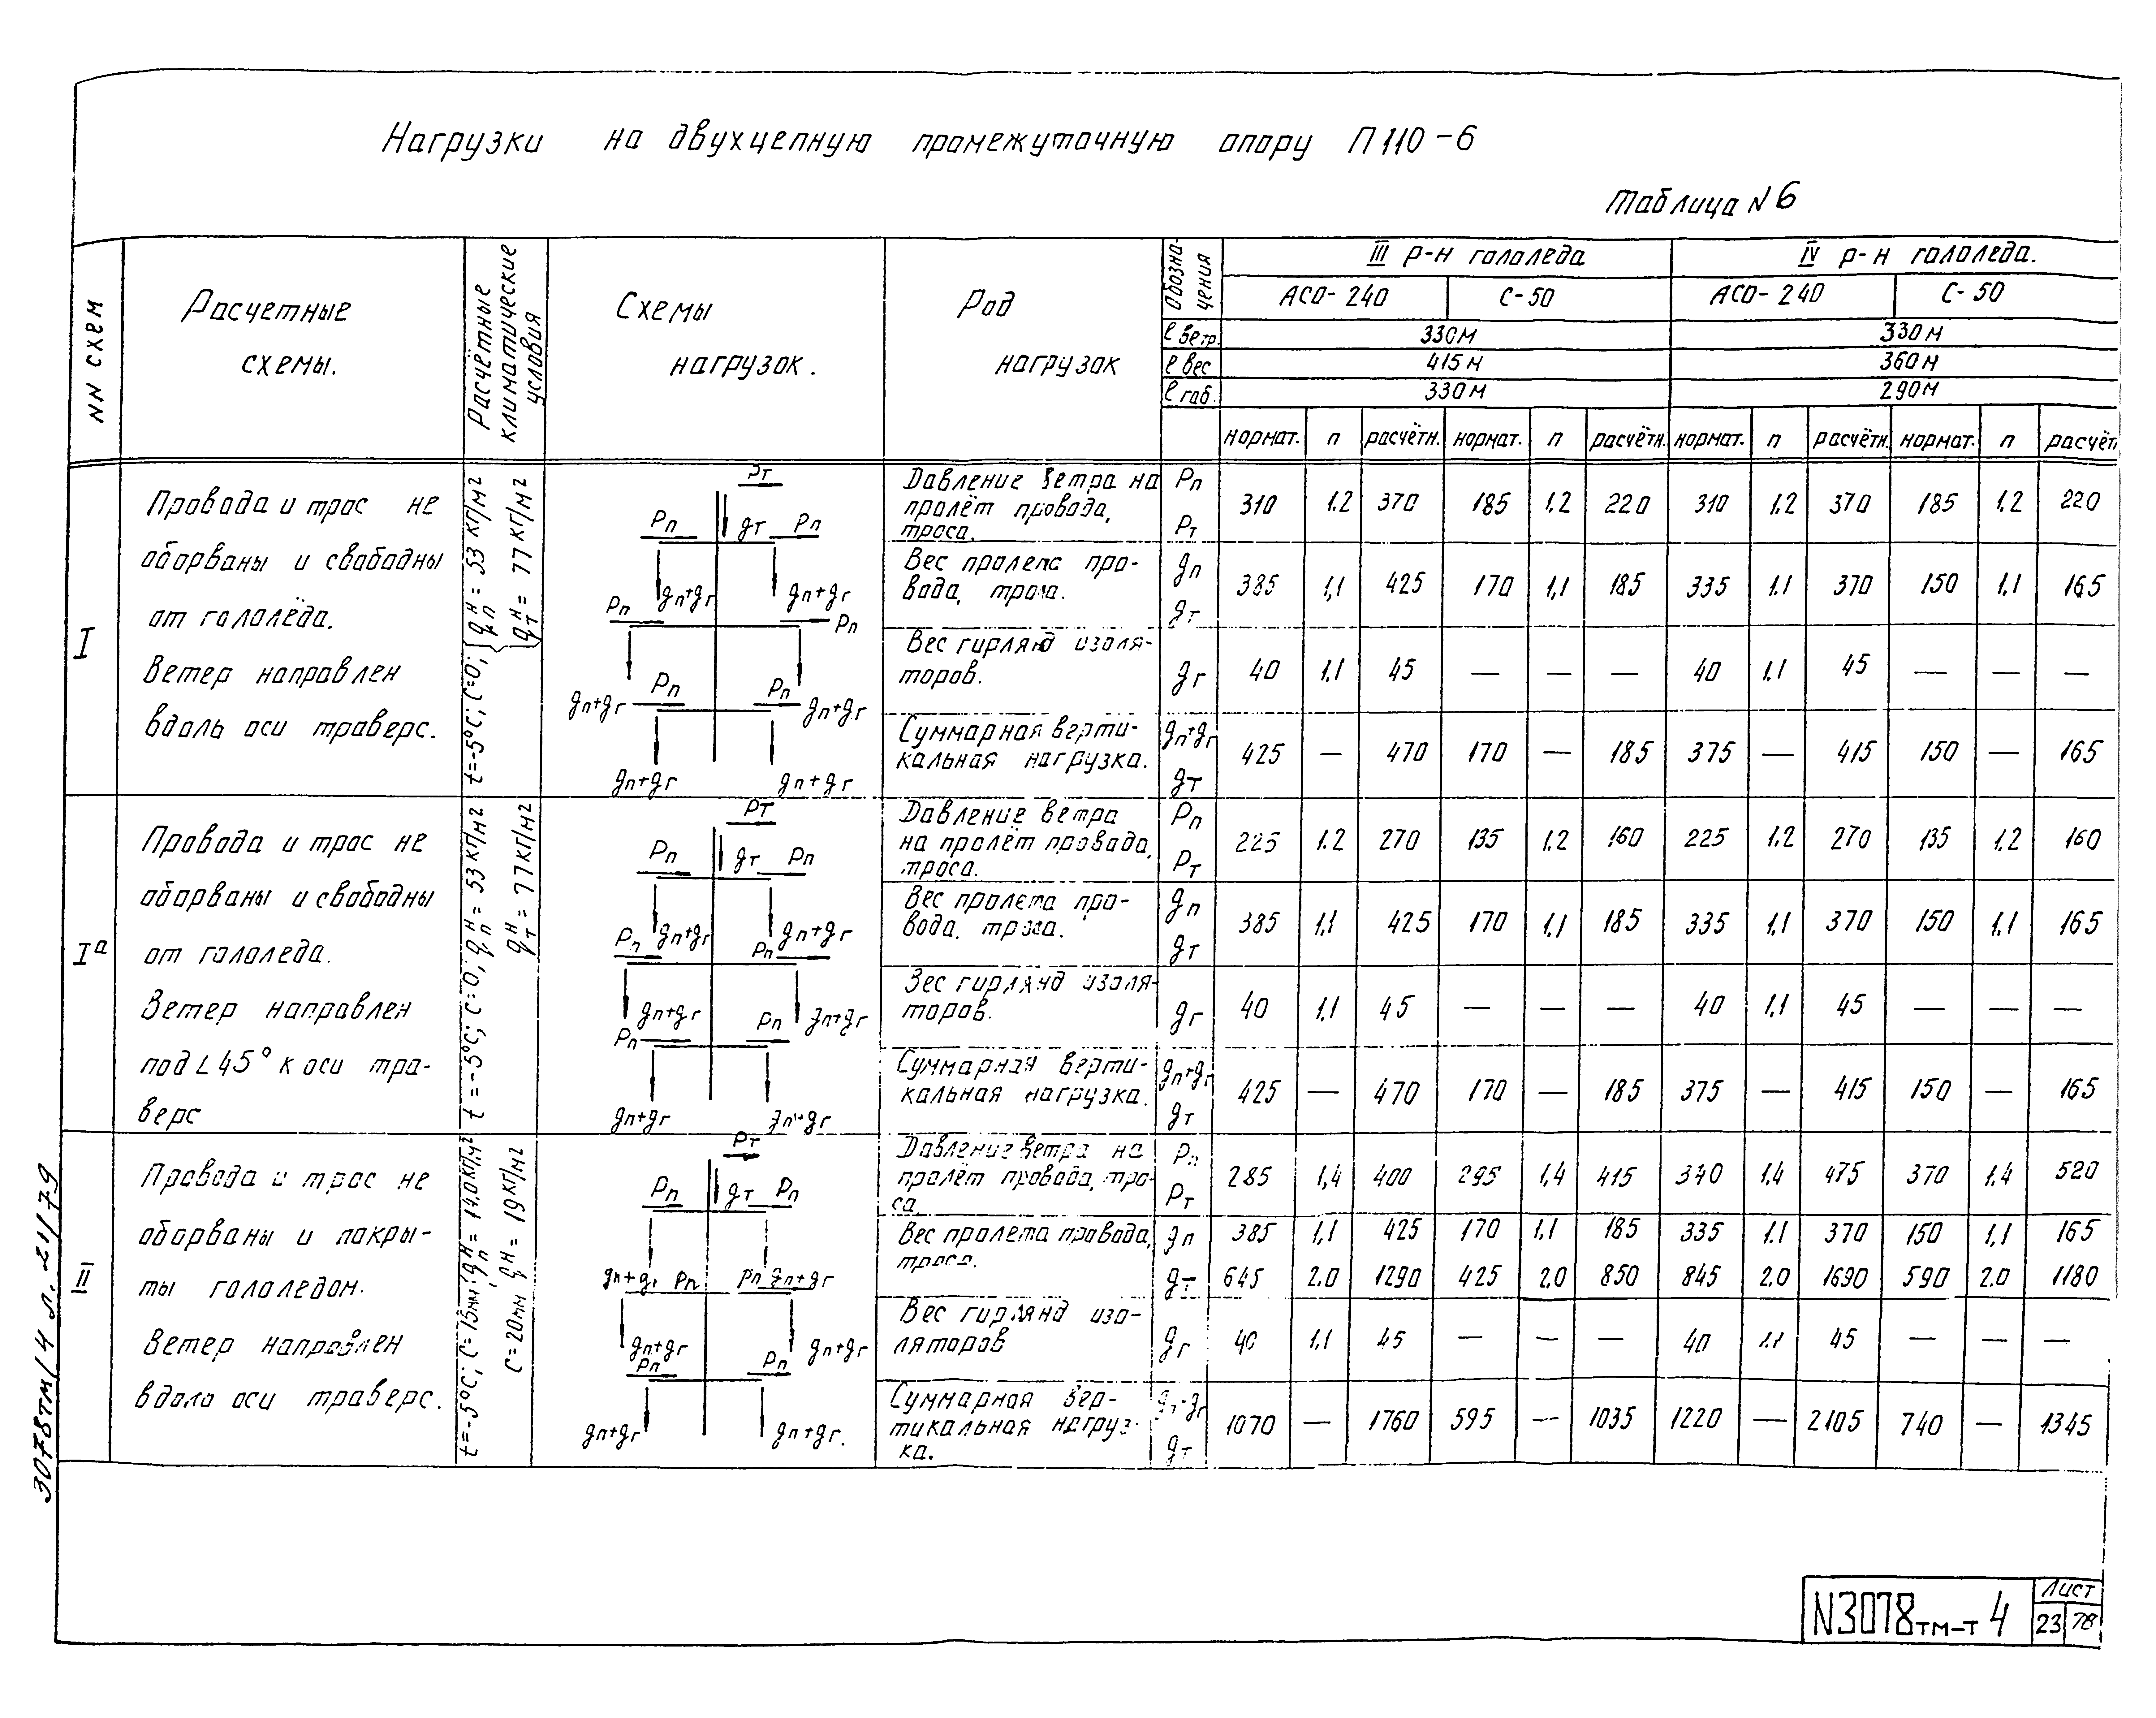 Нагрузки на двухцепную промежуточную опору П110-6
Таблица N6
NN схем
Расчетные схемы.
Расчётные климатические условия
Схемы нагрузок.
Род нагрузок
Обозначения
III р-н гололеда
IV р-н гололеда.
АСО-240 С-50 АСО-240 С-50
l ветр. 330м 330м
l вес 415м 360м
l габ. 330м 290м
нормат. п расчётн. нормат. п расчётн. нормат. п расчётн. нормат. п расчётн
I
Провода и трос не
оборваны и свободны
от гололёда.
Ветер направлен
вдоль оси траверс.
t=-5°С; С=0; qпᴴ = 53 кг/м² qтᴴ = 77 кг/м²
Pт
Pп gт Pп
gп+gг gп+gг
Pп Pп
gп+gг Pп Pп gп+gг
gп+gг gп+gг
Давление ветра на
пролёт провода,
троса.
Pп
Pт
310 1.2 370 185 1.2 220 310 1.2 370 185 1.2 220
Вес пролета про-
вода, троса.
gп
gт
385 1,1 425 170 1,1 185 335 1.1 370 150 1.1 165
Вес гирлянд изоля-
торов.
gг
40 1.1 45 — — — 40 1.1 45 — — —
Суммарная верти-
кальная нагрузка.
gп+gг
gт
425 — 470 170 — 185 375 — 415 150 — 165
Iа
Провода и трос не
оборваны и свободны
от гололеда.
Ветер направлен
под ∠45° к оси тра-
верс
t=-5°С; С=0; qпᴴ = 53 кг/м²
qтᴴ = 77 кг/м²
Pт
Pп gт Pп
Pп gп+gг Pп gп+gг
gп+gг Pп gп+gг
Pп
gп+gг gп+gг
Давление ветра
на пролёт провода,
троса.
Pп
Pт
225 1.2 270 135 1.2 160 225 1.2 270 135 1.2 160
Вес пролета про-
вода, троса.
gп
gт
385 1,1 425 170 1.1 185 335 1.1 370 150 1.1 165
Вес гирлянд изоля-
торов.
gг
40 1.1 45 — — — 40 1.1 45 — — —
Суммарная верти-
кальная нагрузка.
gп+gг
gт
425 — 470 170 — 185 375 — 415 150 — 165
II
Провода и трос не
оборваны и покры-
ты гололедом.
Ветер направлен
вдоль оси траверс.
t=-5°С; С=15мм; qпᴴ = 14.0кг/м²
С=20мм qᴴ = 19 кг/м²
Pт
Pп gт Pп
gп+gг Pп Pп gп+gг
gп+gг gп+gг
Pп Pп
gп+gг gп+gг.
Давление ветра на
пролёт провода, тро-
са.
Pп
Pт
285 1,4 400 295 1,4 415 340 1.4 475 370 1.4 520
Вес пролета провода,
троса.
gп 385 1,1 425 170 1.1 185 335 1.1 370 150 1,1 165
gт 645 2.0 1290 425 2.0 850 845 2.0 1690 590 2.0 1180
Вес гирлянд изо-
ляторов
gг
40 1.1 45 — — — 40 1.1 45 — — —
Суммарная вер-
тикальная нагруз-
ка.
gп+gг
gт
1070 — 1760 595 — 1035 1220 — 2105 740 — 1345
3078тм/4 л. 21/79
N3078тм-т4
Лист
23 78